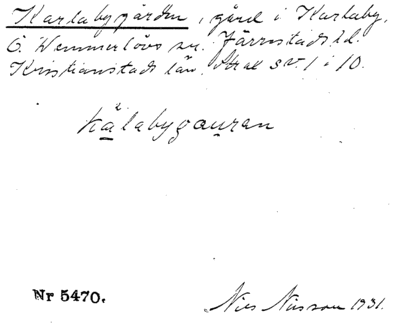 Karlabygården, gård i Karlaby,
Ö. Wemmerlövs sn. Järrestads hd.
Kristianstads län. Skal 3 sv. 1 i 10.
kälabygauran
Nr 5470.
Nils Nilsson 1931.